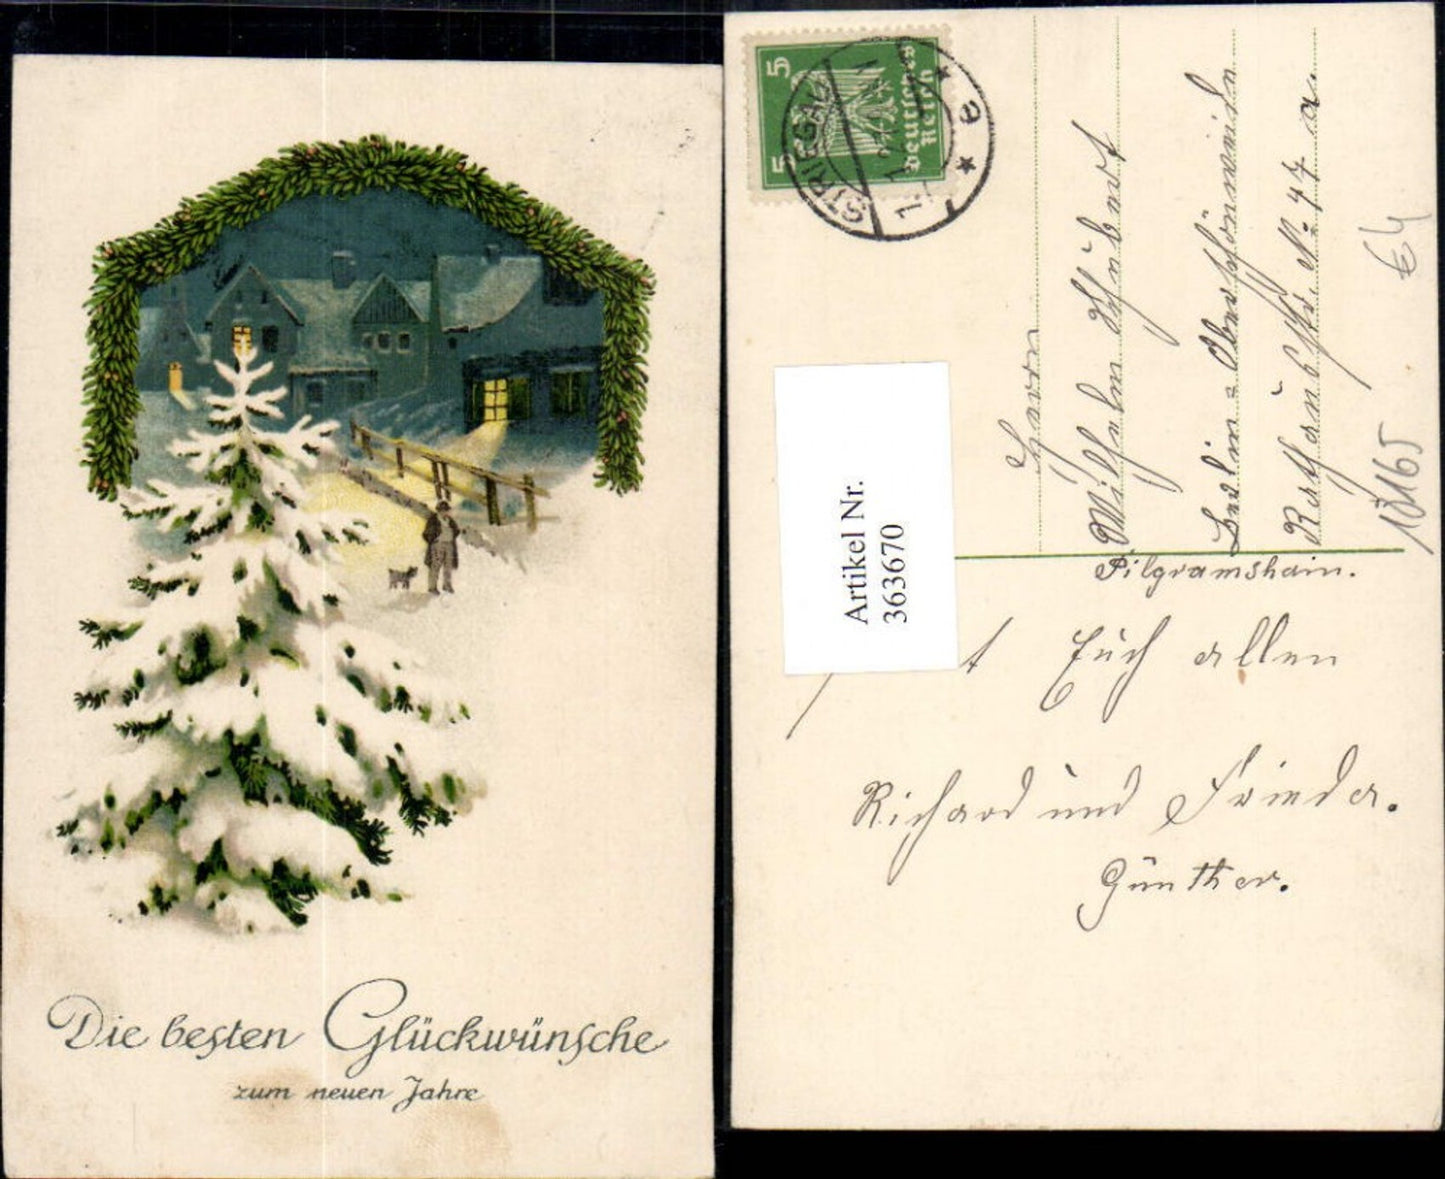 Die besten Glückwünsche
zum neuen Jahre
5 5
Deutsches
Reich
STRIEGAU
* e *
1.1.
Artikel Nr.
363670
Herrn
Wilhelm Schubert
Berlin = Oberschöneweide
Rathausstr. No: 47 a.
€4
Pilgramshain.
t Euch allen
Richard und Frieda.
Günther.